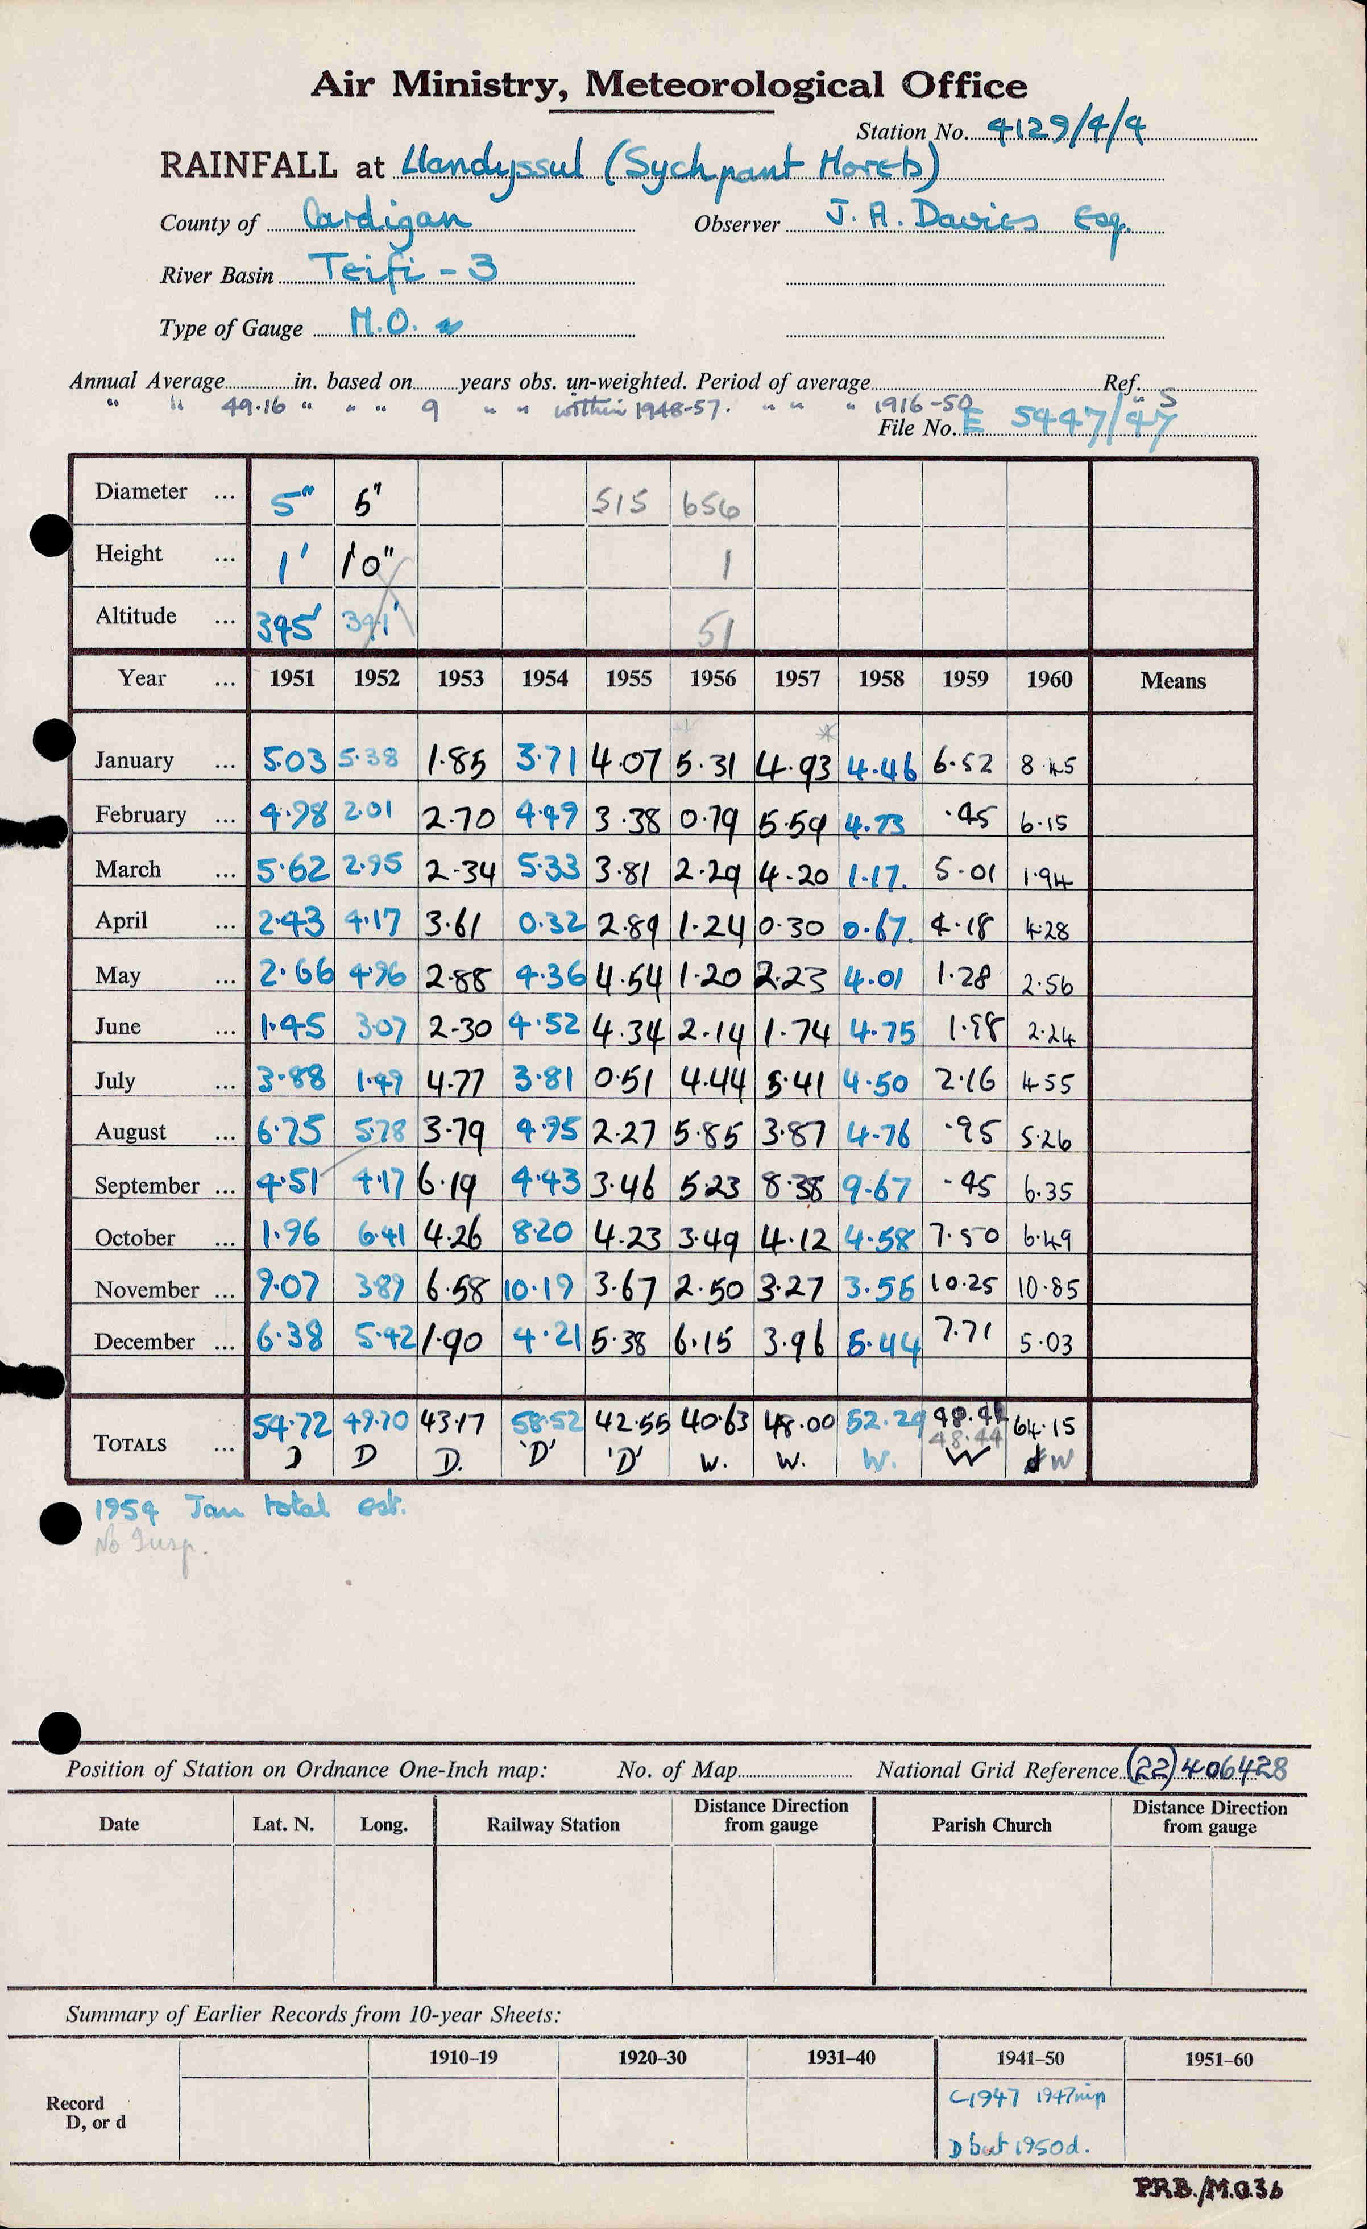 Air Ministry, Meteorological Office
Station No. 4129/4/4
RAINFALL at Llandyssul (Sychpant Horeb)
County of Cardigan Observer J. A. Davies Esq.
River Basin Teifi - 3
Type of Gauge M.O.
Annual Average in. based on years obs. un-weighted. Period of average Ref.
" " 49.16 " " " 9 " " within 1948-57. " " " 1916-50 " S
File No. E 5447/47
Diameter ... 5" 5" 515 656
Height ... 1' 1'0" 1
Altitude ... 395' 391' 51
Year ... 1951 1952 1953 1954 1955 1956 1957 1958 1959 1960 Means
January ... 5.03 5.38 1.85 3.71 4.07 5.31 4.93 4.46 6.52 8.45
February ... 4.98 2.01 2.70 4.49 3.38 0.79 5.59 4.73 .45 6.15
March ... 5.62 2.95 2.34 5.33 3.81 2.29 4.20 1.17. 5.01 1.94
April ... 2.43 4.17 3.61 0.32 2.89 1.24 0.30 0.67. 4.18 4.28
May ... 2.66 4.96 2.88 4.36 4.54 1.20 2.23 4.01 1.28 2.56
June ... 1.45 3.07 2.30 4.52 4.34 2.14 1.74 4.75 1.98 2.24
July ... 3.88 1.49 4.77 3.81 0.51 4.44 5.41 4.50 2.16 4.55
August ... 6.75 5.78 3.79 4.95 2.27 5.85 3.87 4.76 .95 5.26
September ... 4.51 4.17 6.19 4.43 3.46 5.23 8.38 9.67 .45 6.35
October ... 1.96 6.41 4.26 8.20 4.23 3.49 4.12 4.58 7.50 6.49
November ... 9.07 3.89 6.58 10.19 3.67 2.50 3.27 3.56 10.25 10.85
December ... 6.38 5.42 1.90 4.21 5.38 6.15 3.96 5.44 7.71 5.03
TOTALS ... 54.72 49.70 43.17 58.52 42.55 40.63 48.00 52.29 48.44 64.15
48.44
D D D. 'D' 'D' W. W. W. W W
1954 Jan total est.
No Insp.
Position of Station on Ordnance One-Inch map: No. of Map National Grid Reference (22) 406428
Date Lat. N. Long. Railway Station Distance Direction from gauge Parish Church Distance Direction from gauge
Summary of Earlier Records from 10-year Sheets:
1910–19 1920–30 1931–40 1941–50 1951–60
Record D, or d
C1947 1947mip
D but 1950d.
P.R.B./M.O.36